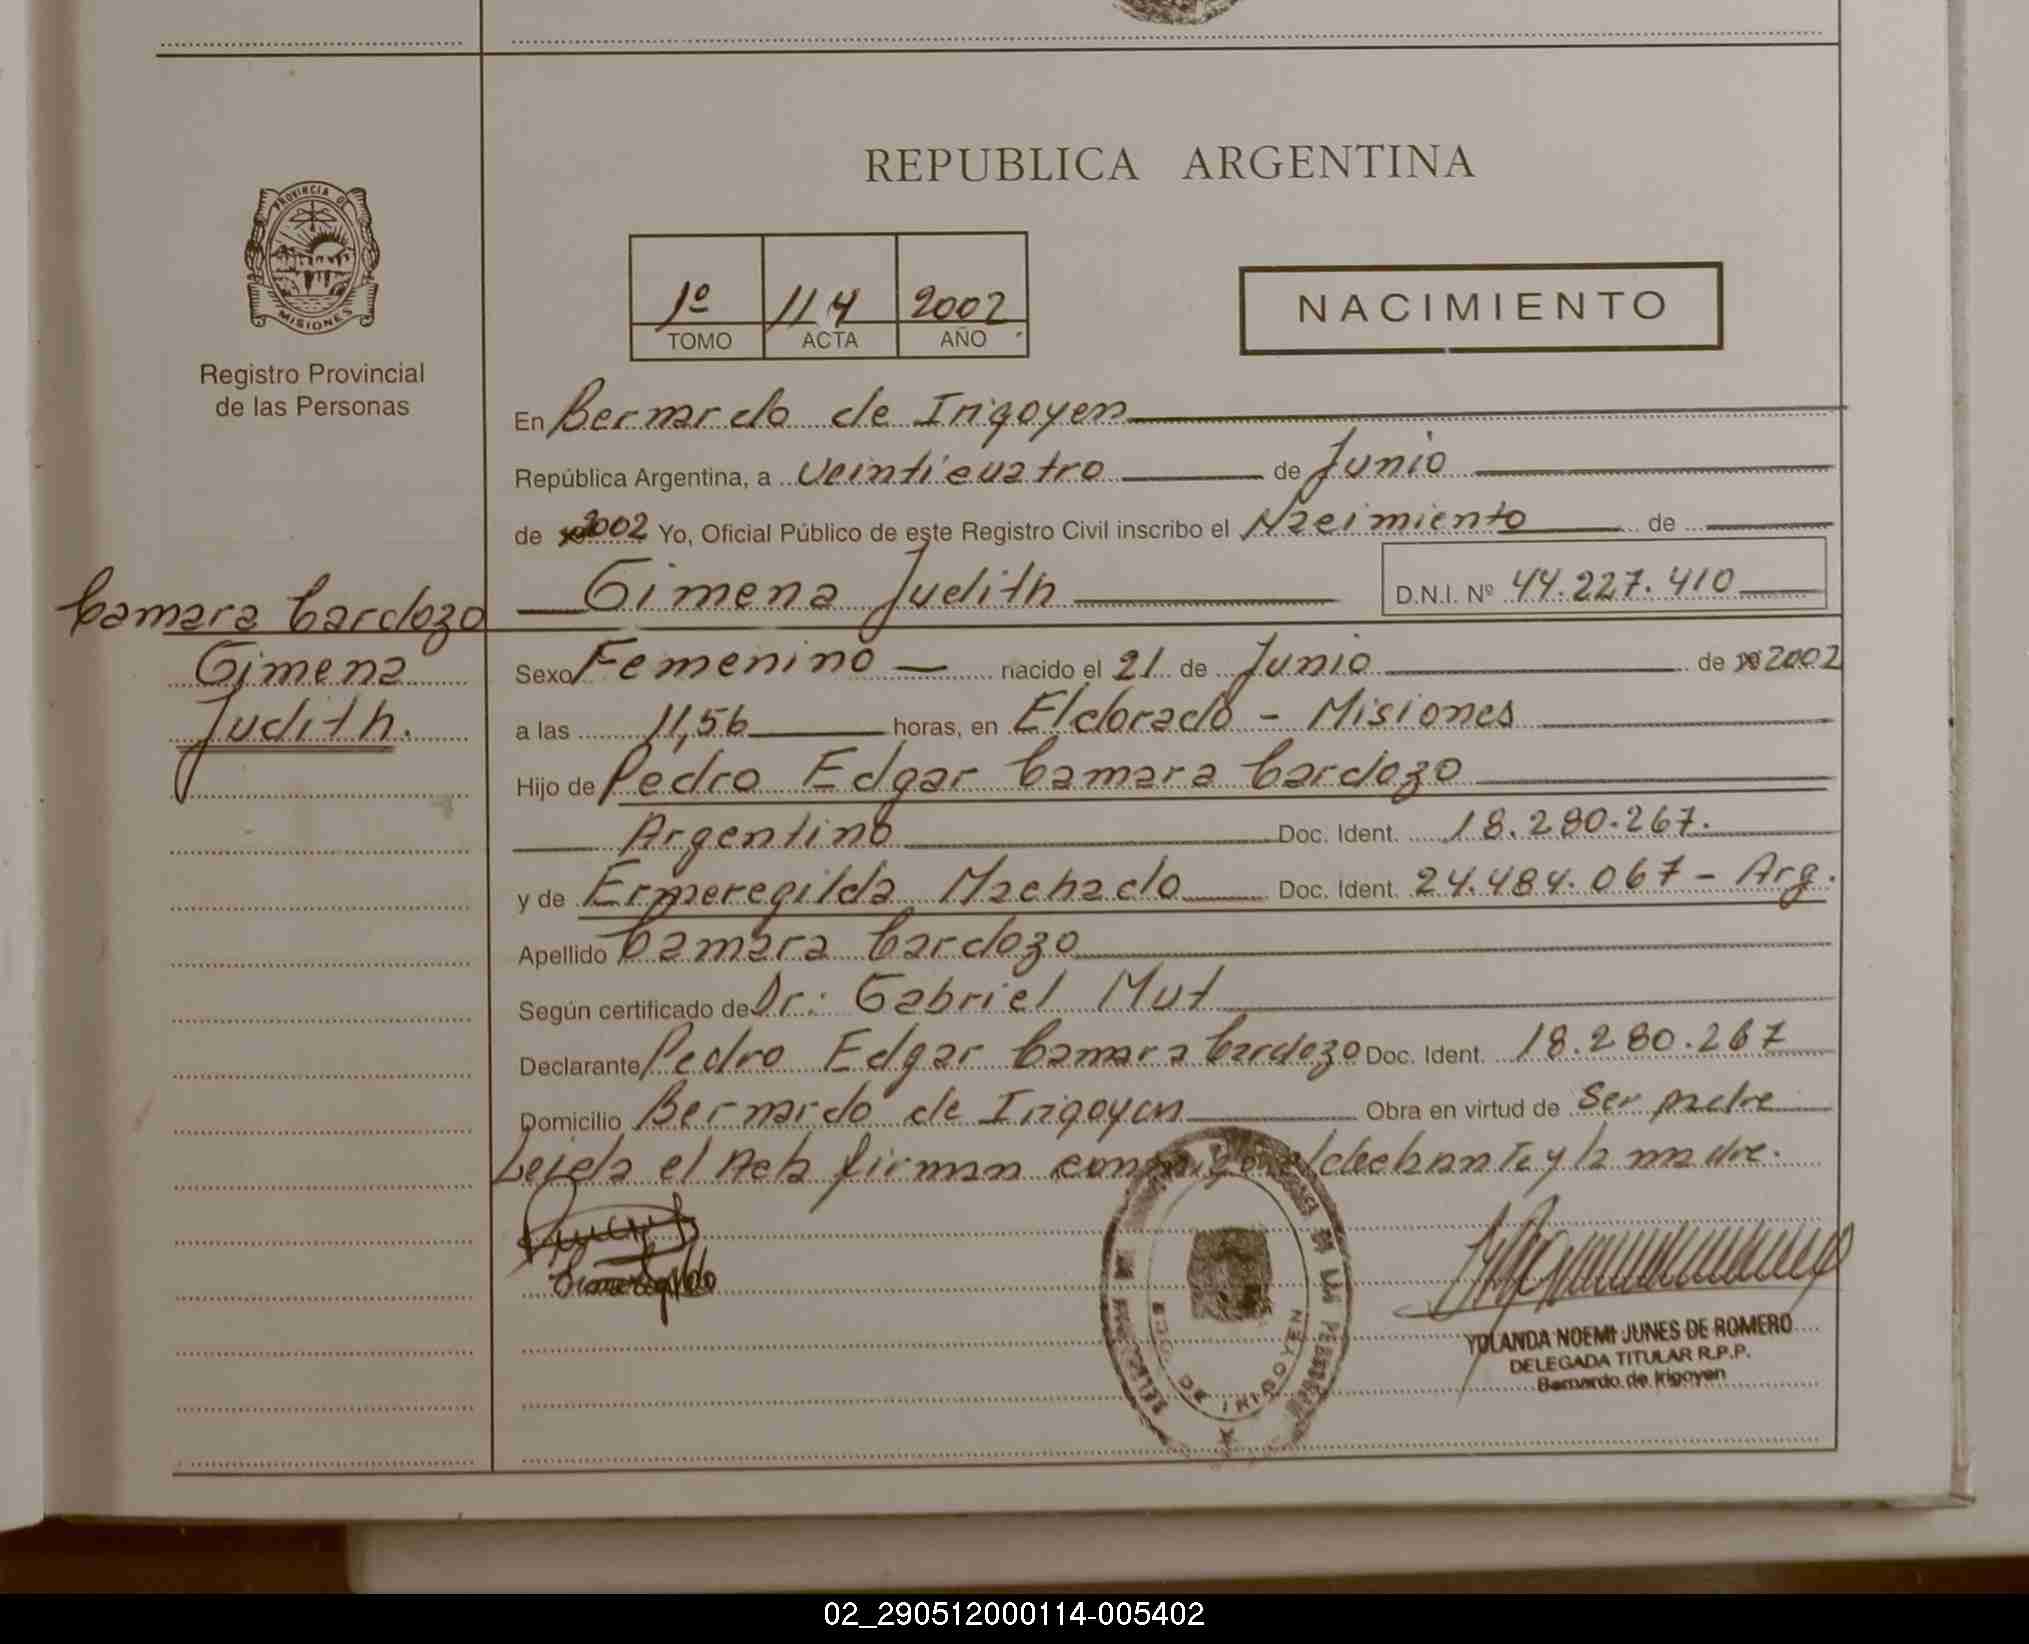 REPUBLICA ARGENTINA
PROVINCIA DE
MISIONES
Registro Provincial
de las Personas
1º 114 2002
TOMO ACTA AÑO
NACIMIENTO
En Bernardo de Irigoyen
República Argentina, a veinticuatro de Junio
de 2002 Yo, Oficial Público de este Registro Civil inscribo el Nacimiento de
Camara Cardozo
Gimena
Judith.
Gimena Judith D.N.I. Nº 44.227.410
Sexo Femenino nacido el 21 de Junio de 2002
a las 11,56 horas, en Eldorado - Misiones
Hijo de Pedro Edgar Camara Cardozo
Argentino Doc. Ident. 18.280.267.
y de Ermeregilda Machado Doc. Ident. 24.484.067 - Arg.
Apellido Camara Cardozo
Según certificado de Dr: Gabriel Mut
Declarante Pedro Edgar Camara Cardozo Doc. Ident. 18.280.267
Domicilio Bernardo de Irigoyen Obra en virtud de Ser padre
Leida el Acta firman conmigo el declarante y la madre.
DE IRIGOYEN
YOLANDA NOEMI JUNES DE ROMERO
DELEGADA TITULAR R.P.P.
Bernardo de Irigoyen
02_290512000114-005402